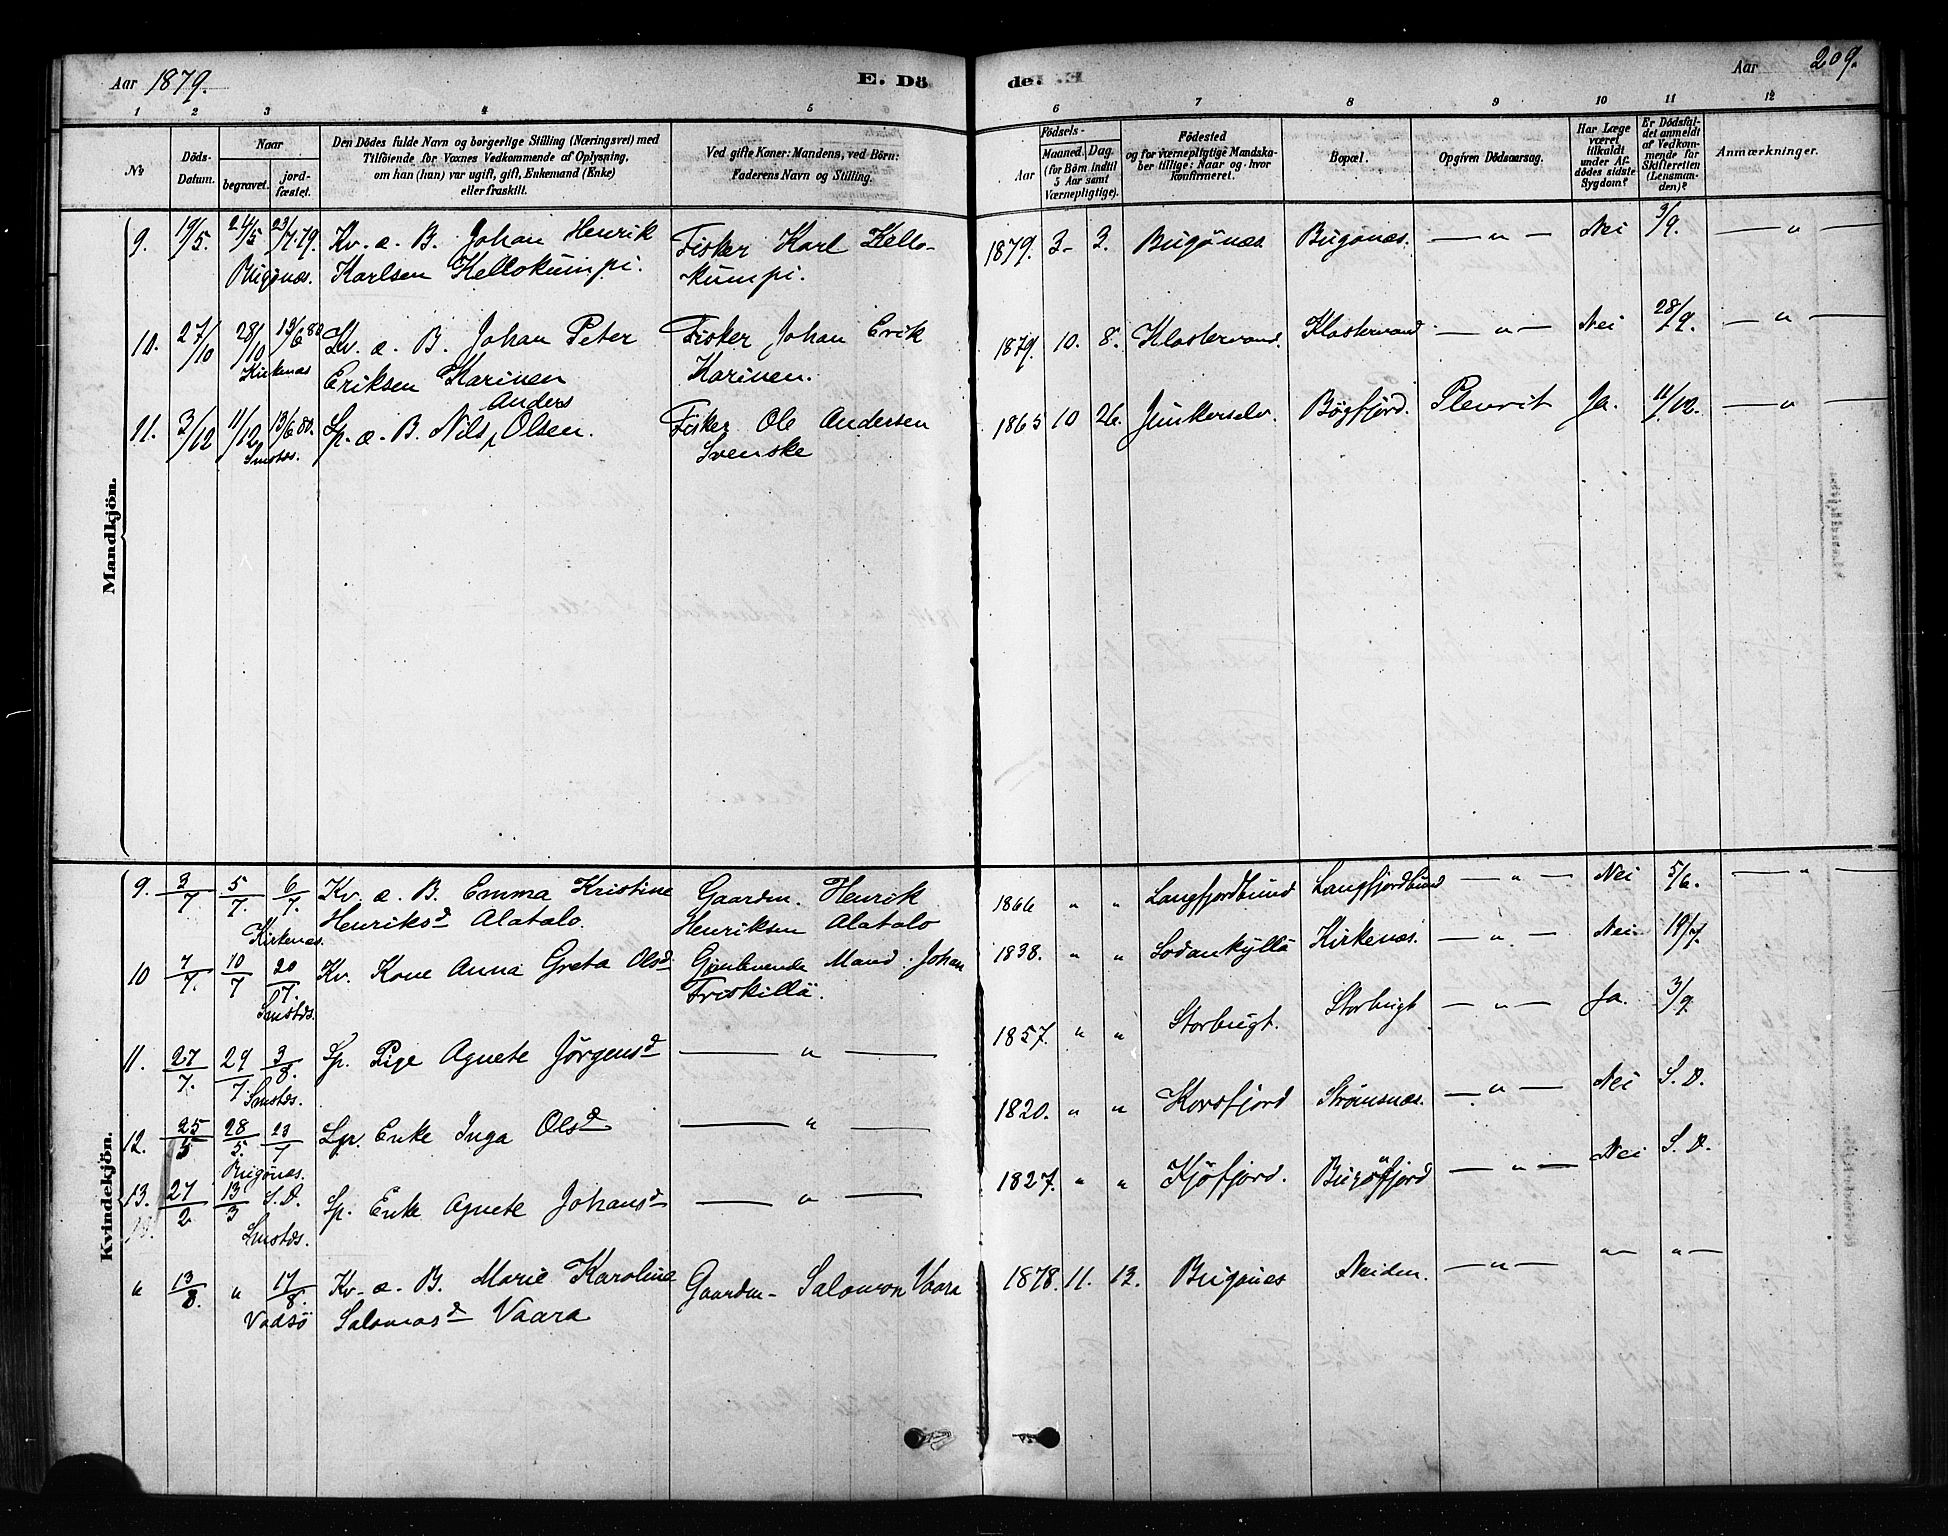 Aar 1879. E. Dö de. Aar 209.
1 2 3 4 5 6 7 8 9 10 11 12
No Döds-Datum. Naar begravet. jord-fæstet. Den Dödes fulde Navn og borgerlige Stilling (Næringsvei) med Tilföiende for Voxnes Vedkommende af Oplysning, om han (hun) var ugift, gift, Enkemand (Enke) eller fraskilt. Ved gifte Koner: Mandens, ved Börn: Faderens Navn og Stilling. Födsels- Aar Maaned. Dag. (for Börn indtil 5 Aar samt Værnepligtige). Födested og for værnepligtige Mandskaber tillige: Naar og hvor konfirmeret. Bopæl. Opgiven Dödsaarsag. Har Læge været tilkaldt under Afdödes sidste Sygdom? Er Dödsfaldet anmeldt af Vedkommende for Skifteretten (Lensmanden)? Anmærkninger.
Mandkjön.
9. 19/5. 24/5 23/7.79. Kv. æ. B. Johan Henrik Fisker Karl Kello- 1879. 3- 3. Bugönæs Bugönæs. — " — Nei 3/9. — " —
Bugönæs. Karlsen Kellokumpi. kumpi.
10. 27/10 28/10 13/6 80 Kv. æ. B. Johan Peter Fisker Johan Erik 1879. 10. 8. Klostervand. Klostervand — " — Nei 28/9. — " —
Kirkenæs Eriksen Karinen Karinen.
Anders
11. 3/12 11/12 13/6 80. Lp. æ. B. Nils, Olsen. Fisker Ole Andersen 1865 10 26. Junkerselv. Bögfjörd. Pleurit Ja. 11/12. — " —
Smstds. Svenske
Kvindekjön.
9. 3/7 5/7. 6/7. Kv. æ. B. Emma Kristine Gaardm. Henrik 1866 " " Langfjordbund Langfjordbund — " — Nei 5/6. — " —
Kirkenæs. Henriksd Alatalo. Henriksen Alatalo
10 7/7. 10/7 20/7. Kv. Kone Anna Greta Olsd Gjenlevende Mand. Johan 1838. " " Sodankyllä Kirkenæs. — " — Nei 19/7.
Smstds. Friskillä.
11. 27/7. 29/7. 3/8. Lp. Pige Agnete Jörgensd — " — 1857. " " Storbugt. Storbugt — " — Ja. 3/9
Smstds.
12. 25/5 28/5. 23/7 Lp. Enke Inga Olsd — " — 1820. " " Korsfjord Strömsnæs. — " — Nei S. D.
Bugönæs.
13. 27/2 13/3 S. D. Lp. Enke Agnete Johansd — " — 1827. " " Kjöfjord. Bugöfjord — " — Nei S. D.
Smstds.
" 13/8. " 17/8. Kv. æ. B. Marie Karoline Gaardm- Salomon Vaara 1878. 11. 12. Bugönes Neiden. — " — — " — " —
Vadsö Salomosd Vaara